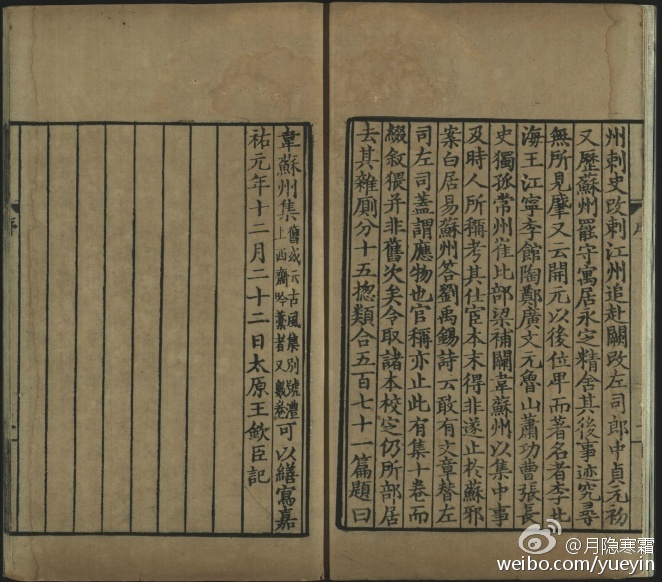 州刺史改刺江州追赴闕改左司郎中貞元初
又歷蘇州罷守寓居永定精舍其後事迹究尋
無所見肇又云開元以後位卑而著名者李北
海王江寧李館陶鄭廣文元魯山蕭功曹張長
史獨孤常州崔比部梁補闕韋蘇州以集中事
及時人所稱考其仕宦本末得非遂止於蘇邪
案白居易蘇州答劉禹錫詩云敢有文章替左
司左司蓋謂應物也官稱亦止此有集十卷而
綴敘猥并非舊次矣今取諸本校定仍所部居
去其雜厠分十五揔類合五百七十一篇題曰
韋蘇州集舊或云古風集別號灃上西齋吟藁者又數卷可以繕寫嘉
祐元年十二月二十二日太原王欽臣記
序
@月隐寒霜
weibo.com/yueyin